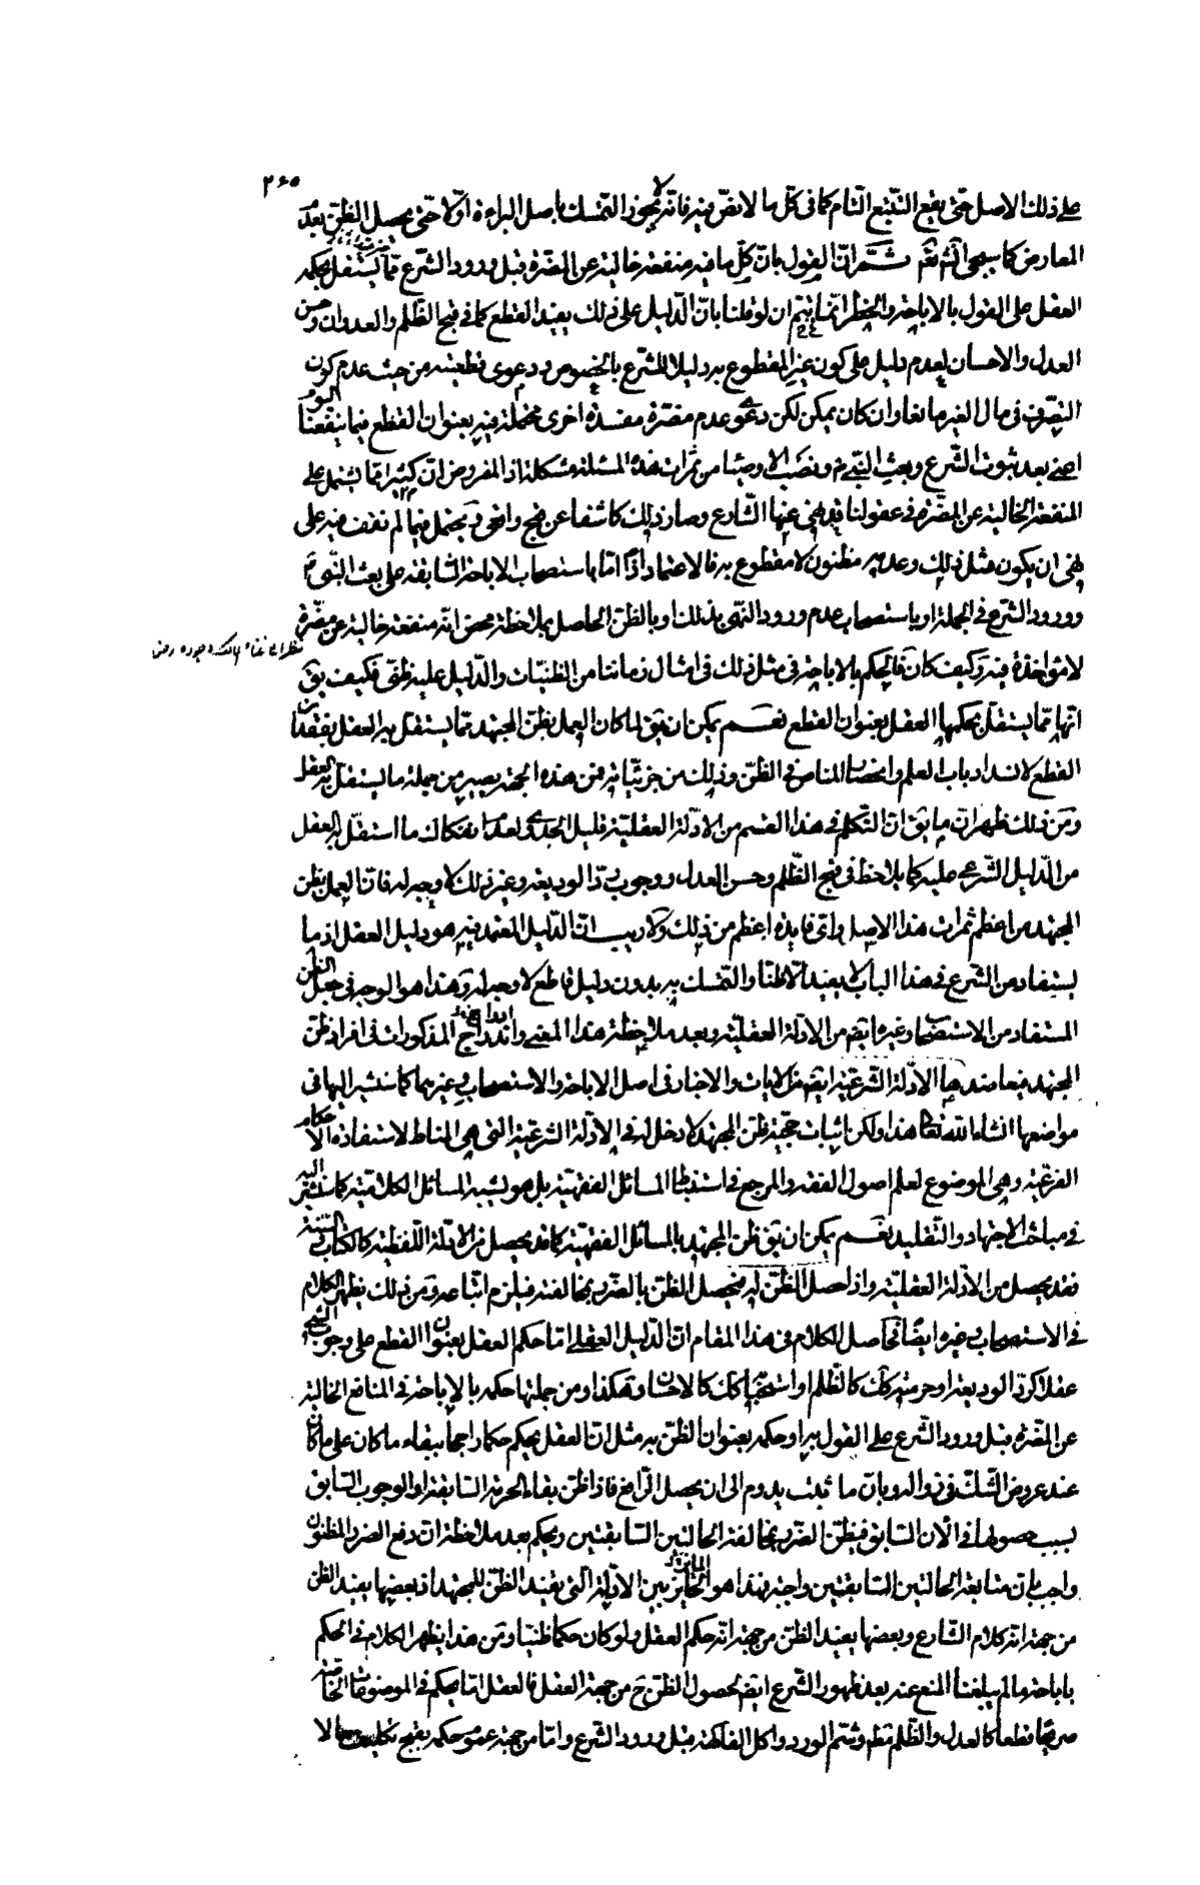 ٢٦٥
على ذلك الاصل حتى يقع التتبع التام كما فى كل ما لا نص فيه فانه لا يجوز التمسك باصل البراءة اولا حتى يحصل الظن بعدم
المعارض كما سيجئ انشاء الله تعالى ثم ان القول بان كل ما فيه منفعة خالية عن المضرة قبل ورود الشرع مما يستقل بحكمه
العقل على القول بالاباحة والحظر انما يتم ان لو قلنا بان الدليل على ذلك يفيد القطع كما فى قبح الظلم والعدوان وحسن
العدل والاحسان لعدم دليل على كون غير المقطوع به دليلا للشرع بالخصوص ودعوى قطعيته من حيث عدم كون
التصرف فى مال الغير مانعا وان كان يمكن لكن دعوى عدم مضرة مفسدة اخرى محتملة فيه بعنوان القطع فيما ينفعنا اليوم
اعنى بعد ثبوت الشرع وبعث النبى ونصب الاوصيا من ثمرات هذه المسئلة مشكلة اذ المفروض ان كثيرا مما يشتمل على
المنفعة الخالية عن المضرة فى عقولنا قد نهى عنها الشارع وصار ذلك كاشفا عن قبح واقعى فيحتمل فيما لم نقف فيه على
نهى ان يكون مثل ذلك وعدمه مظنون لا مقطوع به فالاعتماد اذا اما باستصحاب الاباحة السابقة على بعث النبى
وورود الشرع فى الجملة او باستصحاب عدم ورود النهى بذلك او بالظن الحاصل بملاحظة محض انه منفعة خالية عن مضرة
لا مؤاخذة فيه وكيف كان فالحكم بالاباحة فى مثل ذلك فى امثال زماننا من الظنيات والدليل عليه ظنى فكيف يق
انها مما يستقل بحكمها العقل بعنوان القطع نعم يمكن ان يق لما كان العمل بظن المجتهد مما يستقل به العقل بعنوان
القطع لانسداد باب العلم وانحصار المناص فى الظن وذلك من جزئياته فمن هذه الجهة يصير من جملة ما يستقل به العقل
ومن ذلك ظهر ان ما يق ان التكلم فى هذا القسم من الادلة العقلية قليل الجدوى لعدم انفكاك ما استقل به العقل
من الدليل الشرعى عليه كما يلاحظ فى قبح الظلم وحسن العدل ووجوب رد الوديعة وغير ذلك لا وجه له فان العمل بظن
المجتهد من اعظم ثمرات هذا الاصل واى فايدة اعظم من ذلك ولا ريب ان الدليل المعتمد فيه هو دليل العقل اذ ما
يستفاد من الشرع فى هذا الباب لا يفيد الا ظنا والتمسك به بدون دليل قاطع لا وجه له وهذا هو الوجه فى جعل الظن
المستفاد من الاستصحاب وغيره ايضا من الادلة العقلية وبعد ملاحظة هذا المعنى واندراج المذكورات فى افراد ظن
المجتهد فيعاضدها الادلة الشرعية ايضا من الايات والاخبار فى اصل الاباحة والاستصحاب وغيرهما كما سنشير اليها فى
مواضعها انشاء الله تعالى هذا ولكن اثبات حجية ظن المجتهد لا دخل له فى الادلة الشرعية التى هى المناط لاستفادة الاحكام
الفرعية وهى الموضوع لعلم اصول الفقه والمرجع فى استنباط المسائل الفقهية بل هو يشبه المسائل الكلامية كما سنشير اليه
فى مباحث الاجتهاد والتقليد نعم يمكن ان يق ظن المجتهد بالمسائل الفقهية كما قد يحصل من الادلة اللفظية كالكتاب والسنة
فقد يحصل من الادلة العقلية واذا حصل الظن له فيحصل الظن بالضرر بمخالفته فيلزم اتباعه ومن ذلك يظهر الكلام
فى الاستصحاب وغيره ايضا فحاصل الكلام فى هذا المقام ان الدليل العقلى اما حكم العقل بعنوان القطع على وجوب الشئ
عقلا كرد الوديعة او حرمته كك كالظلم او استحبابه كك كالاحسان وهكذا ومن جملتها حكمه بالاباحة فى المنافع الخالية
عن المضرة قبل ورود الشرع على القول به او حكمه بعنوان الظن به مثل ان العقل يحكم حكما راجحا ببقاء ما كان على ما كان
عند عروض الشك فى زواله وبان ما ثبت يدوم الى ان يحصل الرافع فاذا ظن بقاء الحرمة السابقة او الوجوب السابق
بسبب حصولها فى الان السابق فيظن الضرر بمخالفة الحالتين السابقتين ويحكم بعد ملاحظة ان دفع الضرر المظنون
واجب بان متابعة الحالتين السابقتين واجبة فهذا هو المايز بين الادلة التى يفيد الظن للمجتهد اذ بعضها يفيد الظن
من جهة انه كلام الشارع وبعضها يفيد الظن من جهة انه حكم العقل ولو كان حكما ظنيا ومن هذا يظهر الكلام فى الحكم
باباحة ما لم يبلغنا المنع عنه بعد ظهور الشرع ايضا لحصول الظن ح من جهة العقل فالعقل اما يحكم فى الموضوعات الخاصة
صريحا قطعا كالعدل والظلم وشم الورد واكل الفاكهة قبل ورود الشرع واما من جهة عموم حكمه بقبح تكليف ما لا